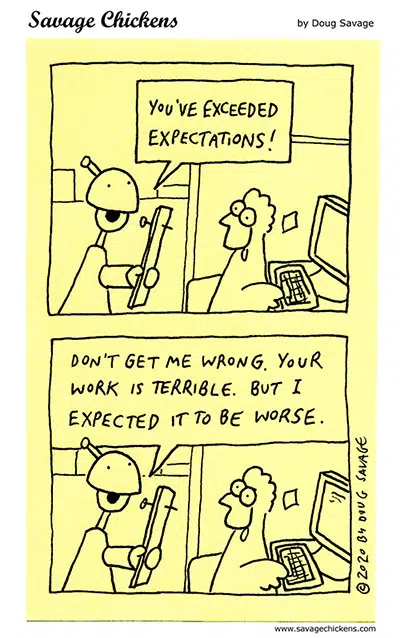 Savage Chickens
by Doug Savage
YOU'VE EXCEEDED
EXPECTATIONS!
DON'T GET ME WRONG. YOUR
WORK IS TERRIBLE. BUT I
EXPECTED IT TO BE WORSE.
© 2020 BY DOUG SAVAGE
www.savagechickens.com